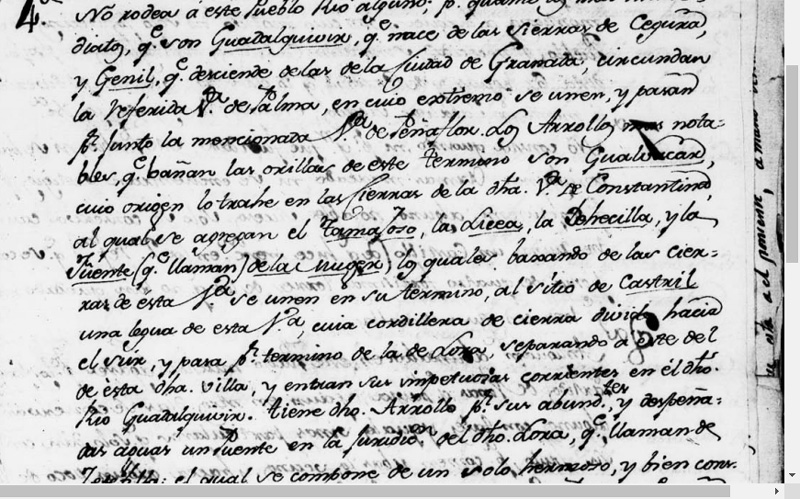 4.º No rodea á este Pueblo Rio alguno; p.r quanto
diatos, q.e son Guadalquivir, q.e nace de las sierras de Cegura,
y Genil, q.e desciende de las de la Ciudad de Granada, circundan
la referida V.a de Palma, en cuio extremo se unen, y pasan
p.r junto la mencionada V.a de Peñaflor. Los Arrollos mas nota-
bles, q.e bañan las orillas de este termino son Gualvacar,
cuio origen lo trahe en las Sierras de la dha. V.a de Constantina,
al qual se agregan el Tamajoso, la Licea, la Dehecilla, y la
Fuente (q.e llaman) de la Muger; los quales baxando de las cier-
ras de esta V.a se unen en su termino, al sitio de Castril
una legua de esta V.a cuia cordillera de cierra divide hacia
el Sur, y pasa p.r termino de la de Lora, separando a este del
de esta dha. villa, y entran sus impetuosas corrientes en él dho.
Rio Guadalquivir. tiene dho. Arrollo p.r sus abund.tes y despeña-
das aguas un Puente en la Juridic.on del dho. Lora, q.e llaman de
el qual se compone de un solo, hermoso, y bien cons-